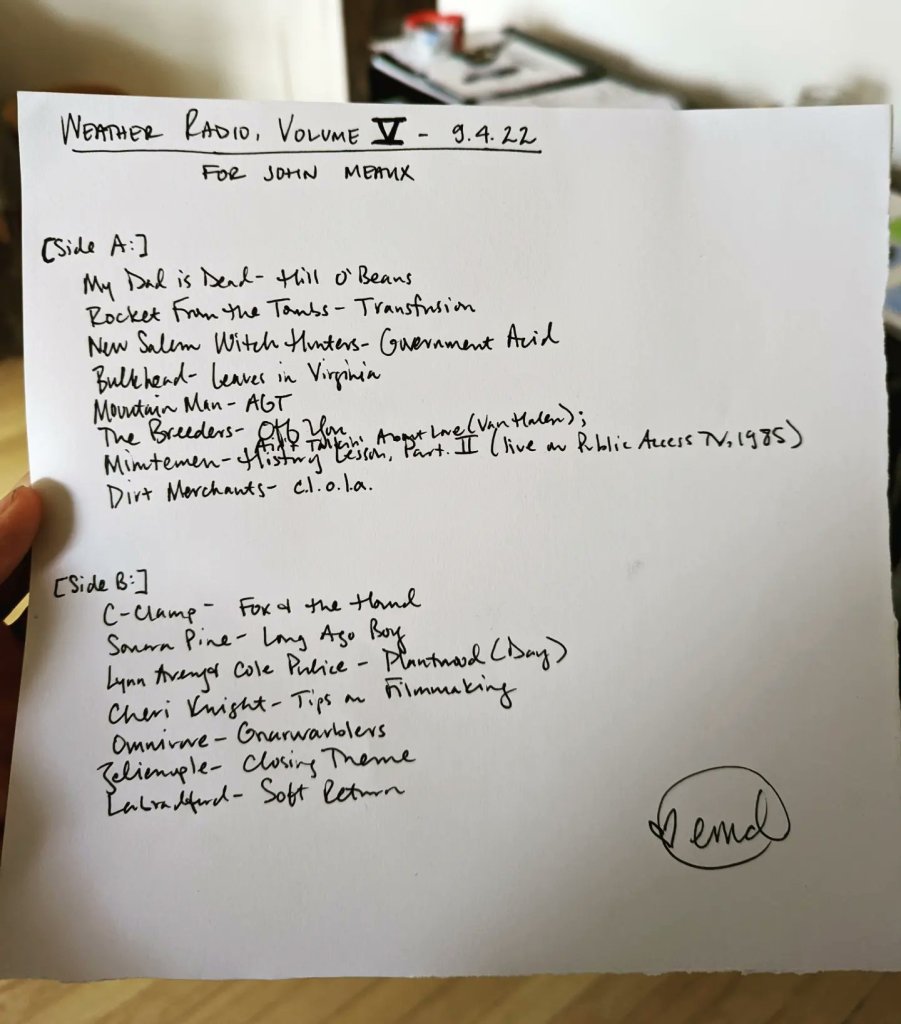 WEATHER RADIO, VOLUME V - 9.4.22
FOR JOHN MEAUX
[Side A:]
My Dad is Dead - Hill O'Beans
Rocket From the Tombs - Transfusion
New Salem Witch Hunters - Government Acid
Bulkhead - Leaves in Virginia
Mountain Man - AGT
The Breeders - Off You
Ain't Talkin' About Love (Van Halen);
Minutemen - History Lesson, Part II (live on Public Access TV, 1985)
Dirt Merchants - c.l.o.l.a.
[Side B:]
C-Clamp - Fox & the Hound
Sonora Pine - Long Ago Boy
Lynn Avery & Cole Pulice - Plantwood (Day)
Cheri Knight - Tips on Filmmaking
Gnarwarblers
Zelienople - Closing Theme
Labradford - Soft Return
emd